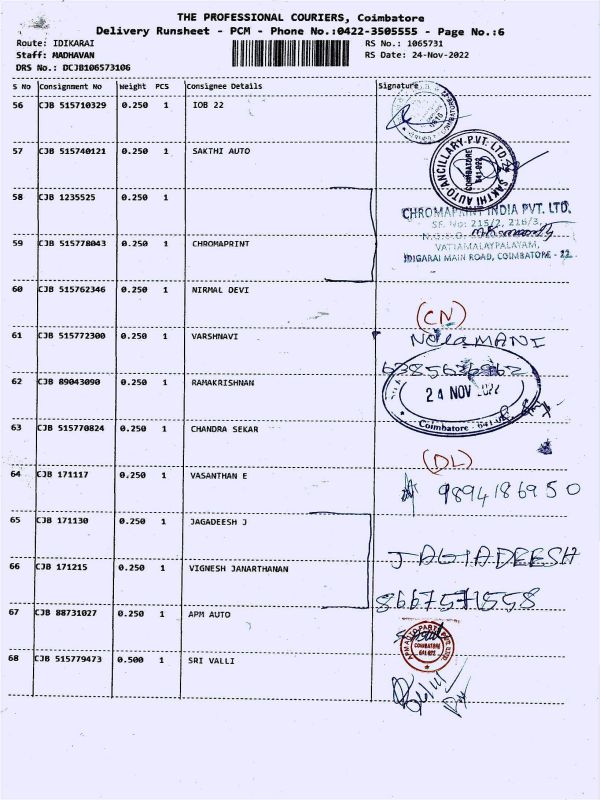 THE PROFESSIONAL COURIERS, Coimbatore
Delivery Runsheet - PCM - Phone No.:0422-3505555 - Page No.:6
Route: IDIKARAI
RS No.: 1065731
Staff: MADHAVAN
RS Date: 24-Nov-2022
DRS No.: DCJB106573106
S No Consignment No Weight PCS Consignee Details Signature
56 CJB 515710329 0.250 1 IOB 22
57 CJB 515740121 0.250 1 SAKTHI AUTO
SAKTHI AUTO ANCILLARY PVT. LTD.
COIMBATORE
641-022
58 CJB 1235525 0.250 1
CHROMAPRINT INDIA PVT. LTD.
SF. No: 215/2, 216/3,
59 CJB 515778043 0.250 1 CHROMAPRINT
VATTAMALAYPALAYAM,
IDIGARAI MAIN ROAD, COIMBATORE - 22
60 CJB 515762346 0.250 1 NIRMAL DEVI
(CN)
61 CJB 515772300 0.250 1 VARSHNAVI
62 CJB 89043090 0.250 1 RAMAKRISHNAN
24 NOV 2022
63 CJB 515770824 0.250 1 CHANDRA SEKAR
Coimbatore
(DL)
64 CJB 171117 0.250 1 VASANTHAN E
9894186950
65 CJB 171130 0.250 1 JAGADEESH J
JAGADEESH
66 CJB 171215 0.250 1 VIGNESH JANARTHANAN
8667571558
67 CJB 88731027 0.250 1 APM AUTO
COIMBATORE
641-022
68 CJB 515779473 0.500 1 SRI VALLI